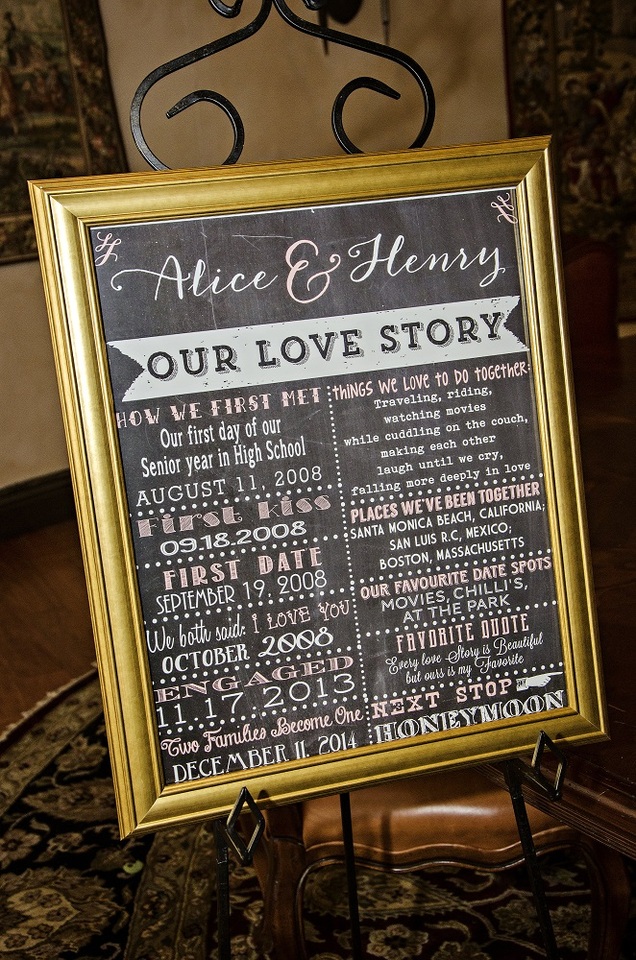 Alice & Henry
OUR LOVE STORY
HOW WE FIRST MET
Our first day of our
Senior year in High School
AUGUST 11, 2008
First Kiss
09.18.2008
FIRST DATE
SEPTEMBER 19, 2008
We both said: I LOVE YOU
OCTOBER 2008
ENGAGED
11.17.2013
Two Families Become One
DECEMBER 11, 2014
THINGS WE LOVE TO DO TOGETHER:
Traveling, riding,
watching movies
while cuddling on the couch,
making each other
laugh until we cry,
falling more deeply in love
PLACES WE'VE BEEN TOGETHER
SANTA MONICA BEACH, CALIFORNIA;
SAN LUIS R.C, MEXICO;
BOSTON, MASSACHUSETTS
OUR FAVOURITE DATE SPOTS
MOVIES, CHILLI'S,
AT THE PARK
FAVORITE QUOTE
Every love Story is Beautiful
but ours is my Favorite
NEXT STOP
HONEYMOON